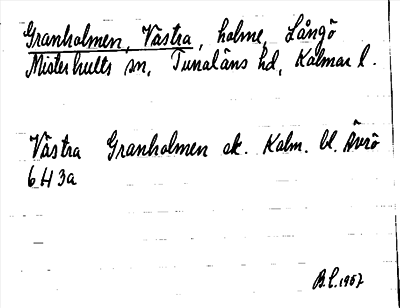 Granholmen, Västra, holme, Långö
Misterhults sn, Tunaläns hd, Kalmar l.
Västra Granholmen ek. Kalm. bl. Ävrö
6H3a
B.L. 1967